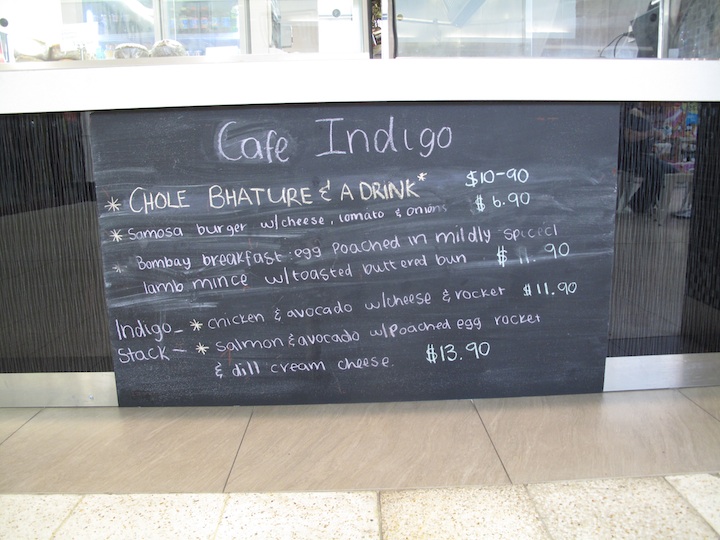 Cafe Indigo
* CHOLE BHATURE & A DRINK* $10-90
* Samosa burger w/cheese, tomato & onions $6.90
* Bombay breakfast: egg poached in mildly spiced
lamb mince w/toasted buttered bun $11.90
Indigo- * chicken & avocado w/cheese & rocket $11.90
Stack- * salmon & avocado w/poached egg rocket
& dill cream cheese. $13.90